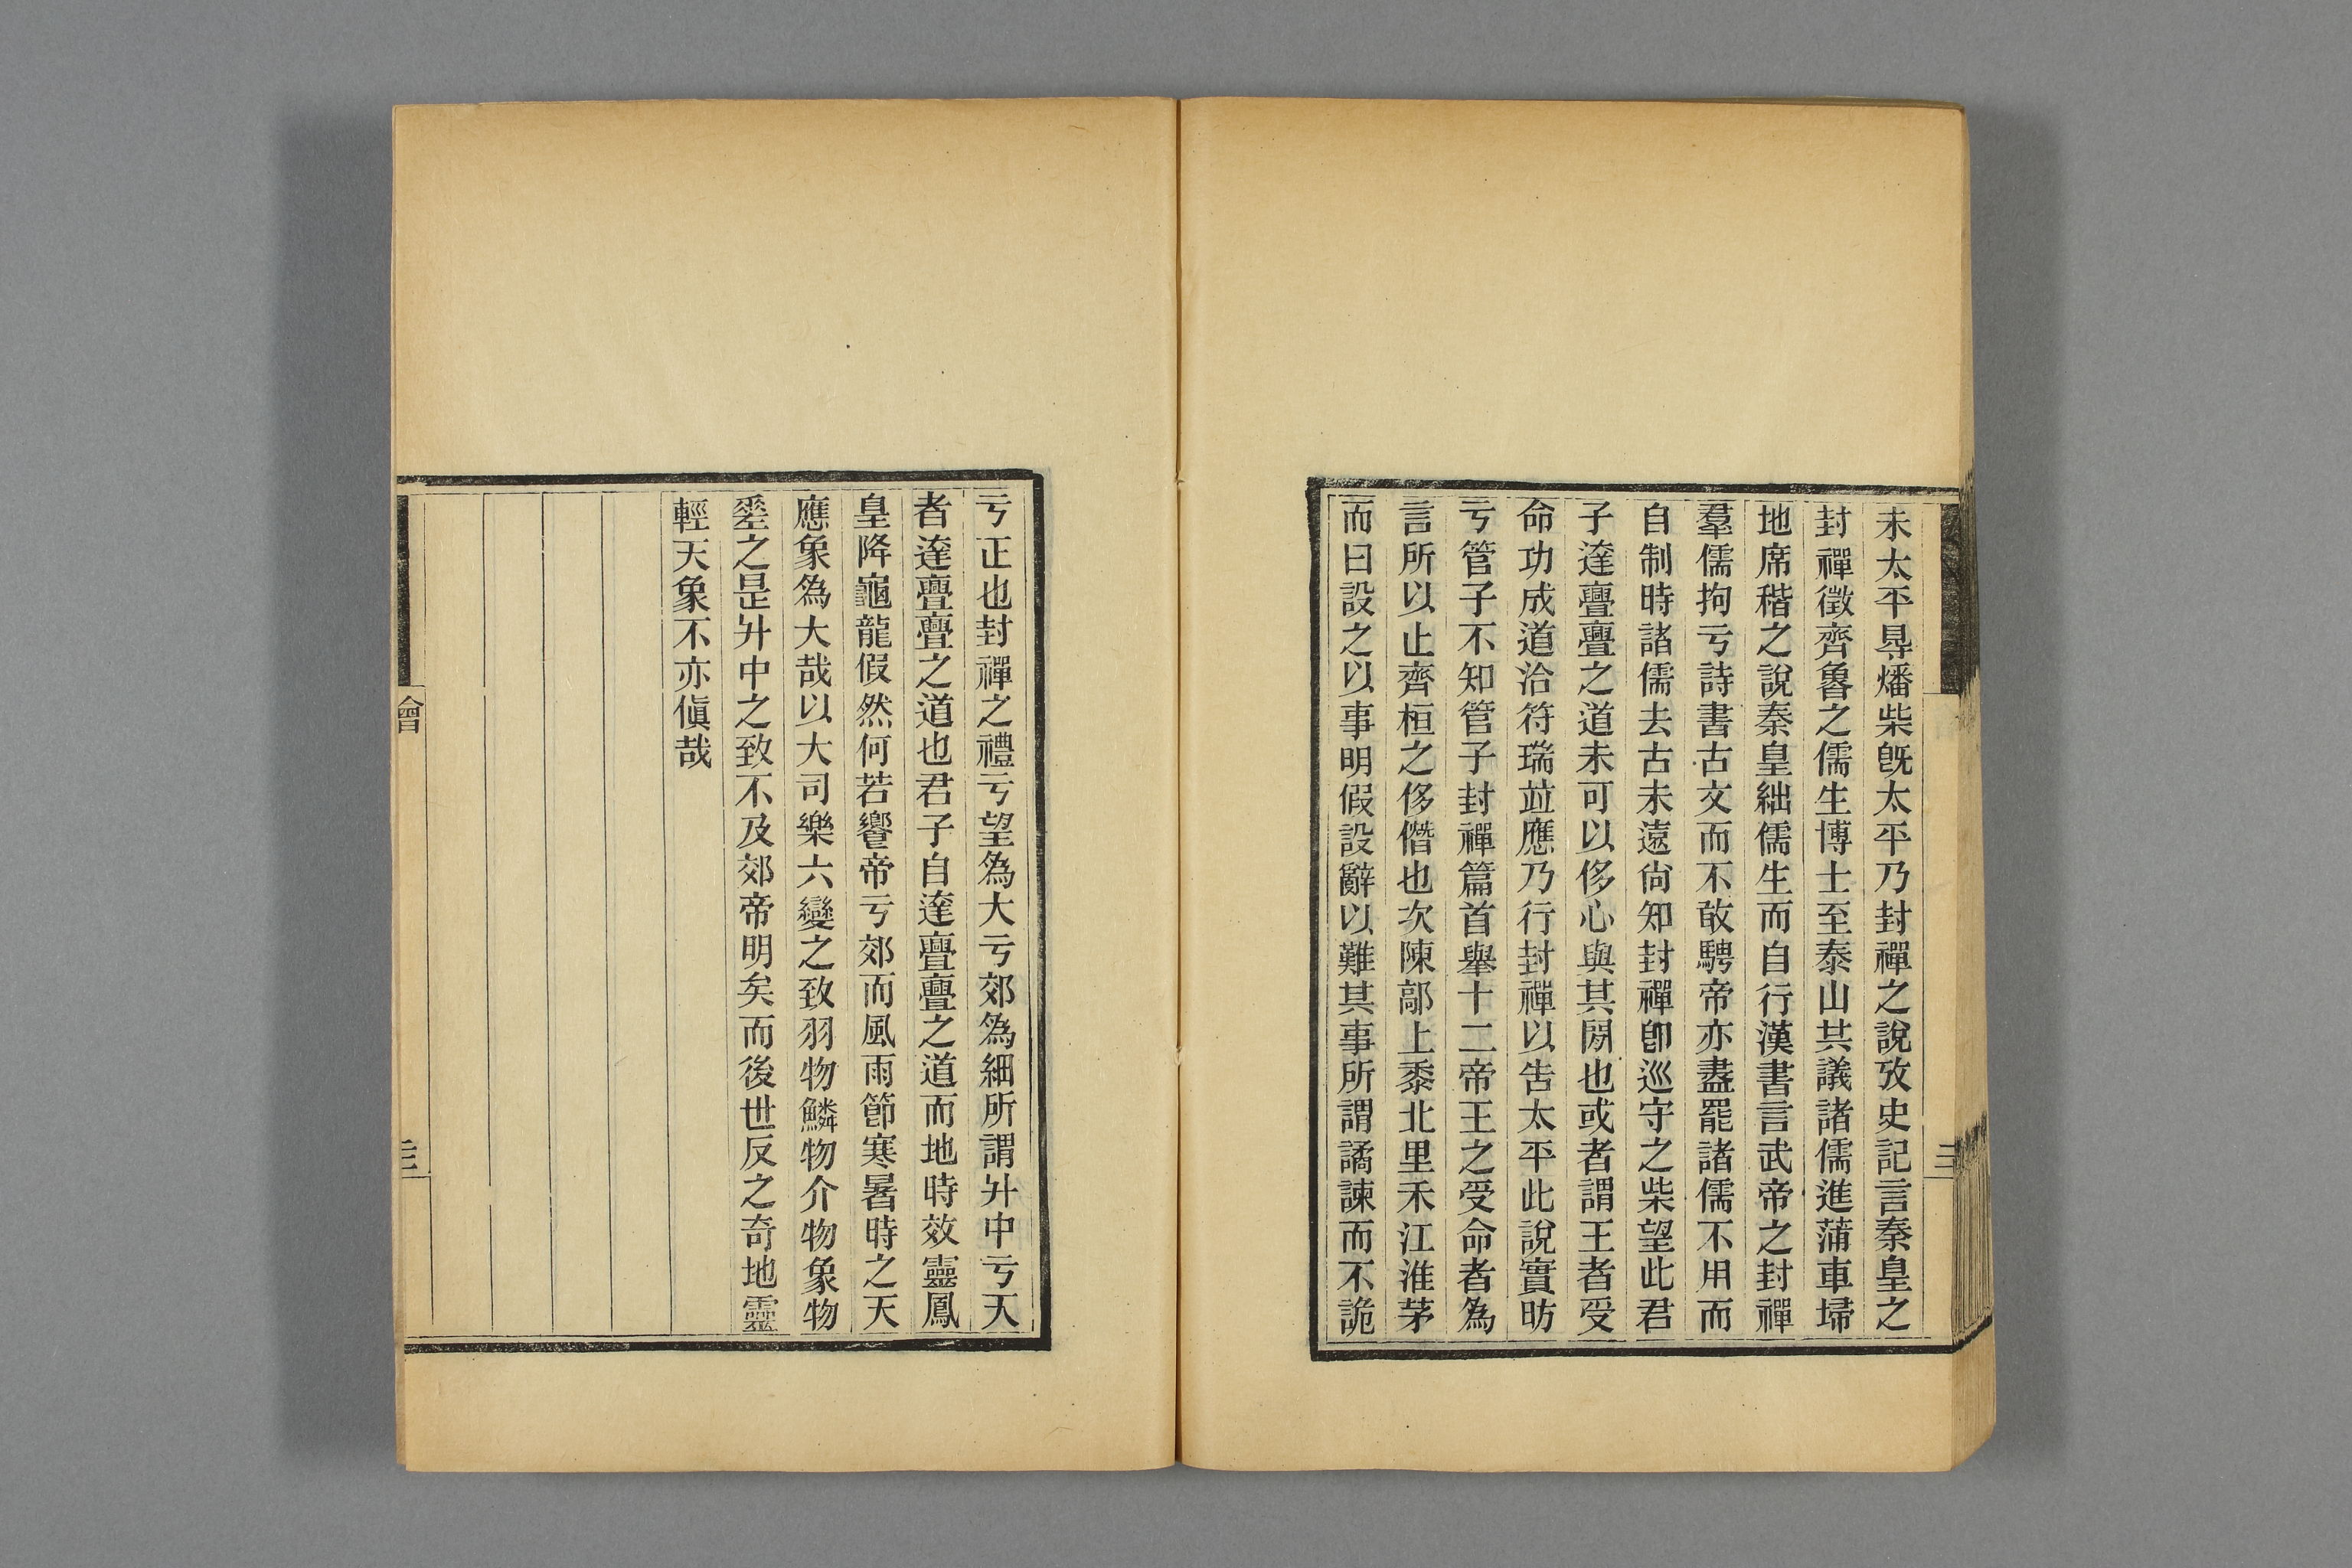 未太平㝵燔柴旣太平乃封禪之說攷史記言秦皇之
封禪徵齊魯之儒生博士至泰山共議諸儒進蒲車埽
地席稭之說秦皇絀儒生而自行漢書言武帝之封禪
羣儒拘亏詩書古文而不敢騁帝亦盡罷諸儒不用而
自制時諸儒去古未遠尙知封禪卽巡守之柴望此君
子達亹亹之道未可以侈心與其閒也或者謂王者受
命功成道洽符瑞竝應乃行封禪以告太平此說實昉
亏管子不知管子封禪篇首舉十二帝王之受命者爲
言所以止齊桓之侈僭也次陳鄗上黍北里禾江淮茅
而曰設之以事明假設辭以難其事所謂譎諫而不詭
亏正也封禪之禮亏望爲大亏郊爲細所謂升中亏天
者達亹亹之道也君子自達亹亹之道而地時效靈鳳
皇降龜龍假然何若饗帝亏郊而風雨節寒暑時之天
應象爲大哉以大司樂六變之致羽物鱗物介物象物
𡍮之是升中之致不及郊帝明矣而後世反之奇地靈
輕天象不亦傎哉
三